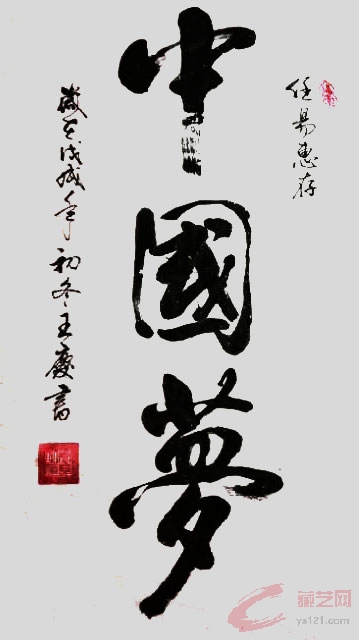 任易惠存
中國夢
歲在戊戌年初冬王慶書
藏艺网
ys121.com